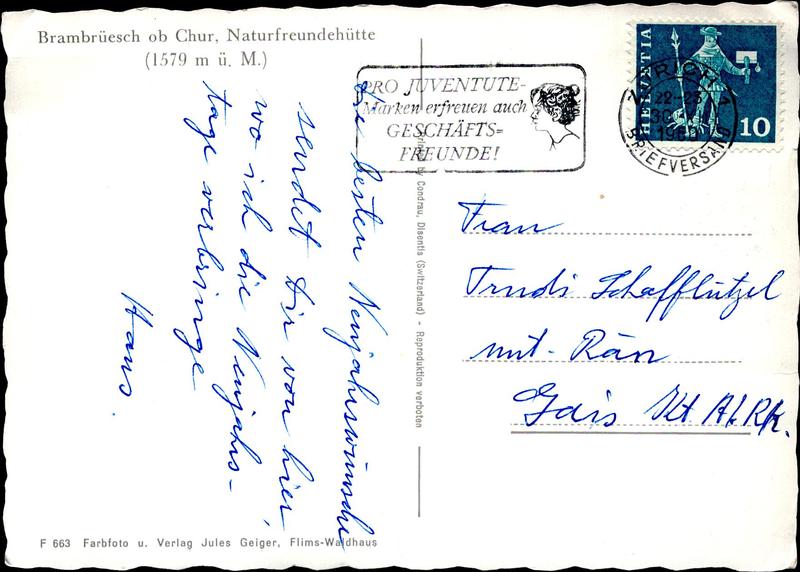 Brambrüesch ob Chur, Naturfreundehütte
(1579 m ü. M.)
PRO JUVENTUTE-
Marken erfreuen auch
GESCHÄFTS=
FREUNDE!
HELVETIA
10
ZÜRICH 1
22-23
30
BRIEFVERSAND
Die besten Neujahrswünsche
sendet Dir von hier
wo ich die Neujahrs-
tage verbringe
Hans.
by Condrau, Disentis (Switzerland) - Reproduktion verboten
Frau
Trudi Schafflützel
Gais Kt
F 663 Farbfoto u. Verlag Jules Geiger, Flims-Waldhaus